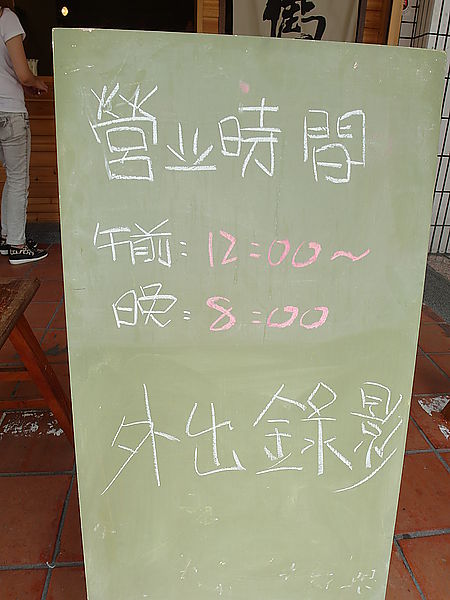 營业時間
午前:12:00~
晚:8:00
外出錄影